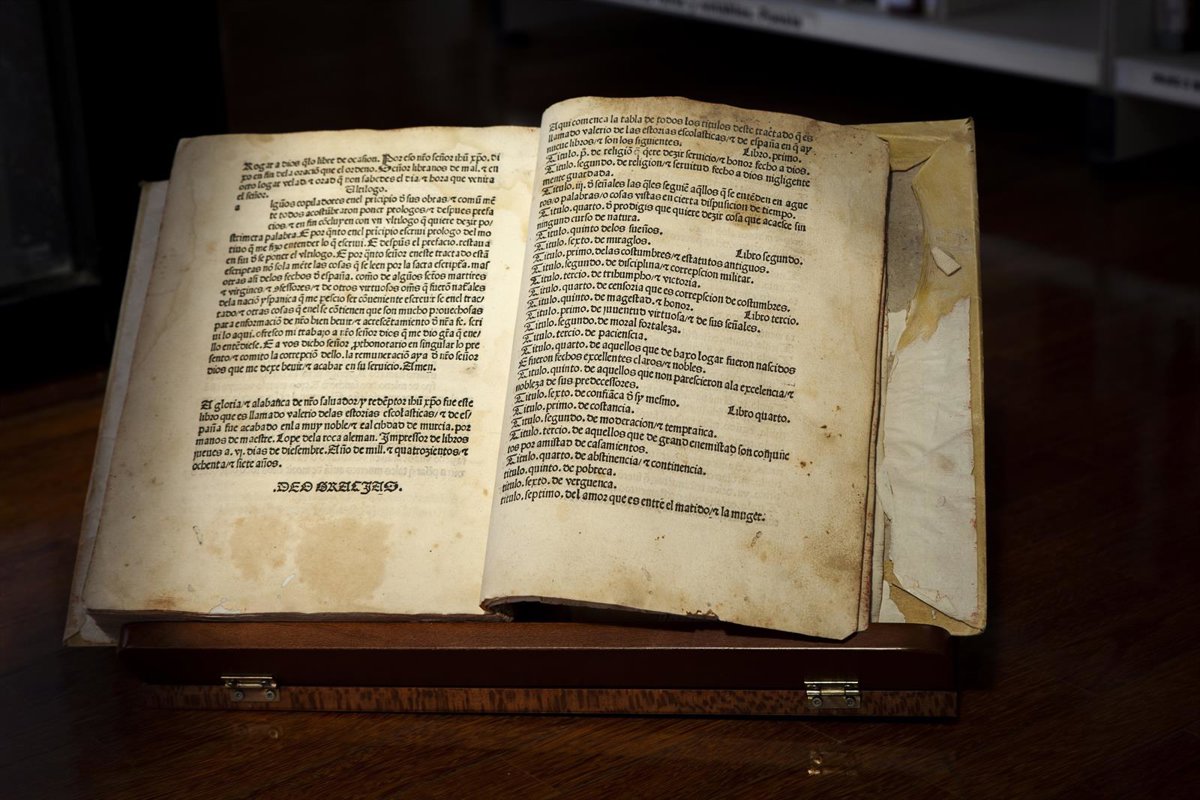 Rogar a dios q̃lo libre de ocasion. Por eso nr̃o señor ihũ xp̃o. di
xo en fin dela oració que el ordeno. Señor libranos de mal. ⁊ en
otro logar velad ⁊ orad q̃ non sabedes el dia ⁊ hora que verna
el señor. Ultilogo.
a lgũos copiladores enel prĩcipio δ sus obras ⁊ comũ mẽ
te todos acostũbraron poner prologos ⁊ despues prefa
cios ⁊ en fin cõcluyen con vn vltilogo q̃ quiere dezir po
strimera palabra. E por q̃nto enel prĩcipio escreui prologo del mo
tiuo q̃ me fizo entender lo q̃ escreui. E despũs el prefacio. restaua
en fin δ se poner el vltilogo. E por q̃nto señor eneste tractado estã
escriptas nõ sola mẽte las cosas q̃ se leen por la sacra escriptã. mas
otras asi delos fechos δ españa. como de algũos sc̃tos martires
⁊ virgines ⁊ 9fessores ⁊ de otros virtuosos om̃s q̃ fuerõ nac̃ales
dela nació yspanica q̃ me pescio ser cõueniente escreuir se enel trac
tado ⁊ otras cosas q̃ enel se cõtienen que son mucho prouechosas
para enformació de nr̃o bien beuir ⁊ acrescẽtamiento δ nr̃a fe. scri
ui lo aqui. ofresco mi trabajo a nr̃o señor dios q̃ me dio gr̃a q̃ ene
llo entẽdiese. E a vos dicho señor prothonotario en singular lo pre
sento ⁊ comito la correpció dello. la remuneració aya δ nr̃o señor
dios que me dexe beuir ⁊ acabar en su seruicio. Amen.
A gloria ⁊ alabança de nr̃o saluador y redẽptor ihũ xp̃o fue este
libro que es llamado valerio delas estorias escolasticas ⁊ de es/
paña fue acabado enla muy noble ⁊ leal cibdad de murcia. por
manos de maestre. Lope dela roca aleman. Impressor de libros
jueues a. vi. dias de diciembre. Año de mill. ⁊ quatrozientos ⁊
ochenta ⁊ siete años.
.DEO GRACIAS.
Aqui comença la tabla de todos los titulos deste tractado q̃ es
llamado valerio de las estorias escolasticas ⁊ de españa en q̃ ay
nueue libros ⁊ son los siguientes. Libro. primo.
Titulo. p̃. de religiõ q̃ q̃ere dezir seruicio ⁊ honor fecho a dios.
Titulo. segundo. de religion ⁊ seruitud fecho a dios nigligente
mente guardada.
Titulo. iij. δ señales las q̃les seguiẽ aq̃llos q̃ se entẽden en ague
ros/o palabras/o cosas vistas en cierta dispusicion de tiempo.
Titulo. quarto. δ prodigis que quiere dezir cosa que acaesce sin
ningund curso de natura.
Titulo. quinto delos sueños.
Titulo. sexto. de miraglos. Libro segundo.
Titulo. primo. delas costumbres ⁊ estatutos antiguos.
Titulo. segundo. de disciplina ⁊ correpsion militar.
Titulo. tercio. de tribumpho ⁊ victoria.
Titulo. quarto. de censoria que es correpscion de costumbres.
Titulo. quinto. de magestad. ⁊ honor. Libro tercio.
Titulo. primo. de juuentud virtuosa ⁊ de sus señales.
Titulo. segundo. de moral fortaleza.
Titulo. tercio. de paciencia.
Titulo. quarto. de aquellos que de baxo logar fueron nascidos
E fueron fechos excellentes claros ⁊ nobles.
Titulo. quinto. de aquellos que non parescieron ala excelencia ⁊
nobleza de sus predecessores.
Titulo. sexto. de confiãca δ sy mesmo. Libro quarto.
Titulo. primo. de costancia.
Titulo. segundo. de moderacion ⁊ temprãnca.
Titulo. tercio. de aquellos que de grand enemistad son conjũne
tos por amistad de casamientos.
Titulo. quarto. de abstinencia ⁊ continencia.
titulo. quinto. de pobreca.
titulo. sexto. de verguenca.
titulo. septimo. del amor que es entre el marido ⁊ la muger.